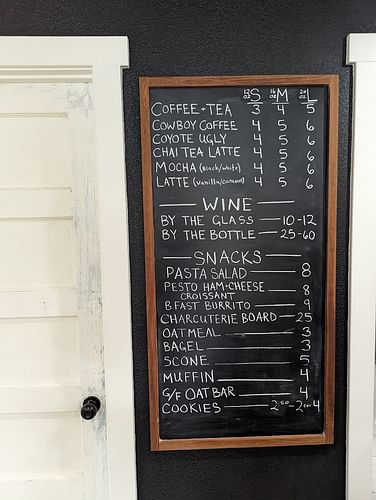 12oz S 16oz M 20oz L
COFFEE + TEA 3 4 5
COWBOY COFFEE 4 5 6
COYOTE UGLY 4 5 6
CHAI TEA LATTE 4 5 6
MOCHA (Black/white) 4 5 6
LATTE (vanilla/caramel) 4 5 6
WINE
BY THE GLASS 10-12
BY THE BOTTLE 25-60
SNACKS
PASTA SALAD 8
PESTO HAM+CHEESE
CROISSANT 8
BFAST BURRITO 9
CHARCUTERIE BOARD 25
OATMEAL 3
BAGEL 3
SCONE 5
MUFFIN 4
G/F OAT BAR 4
COOKIES 2.50 - 2 for 4